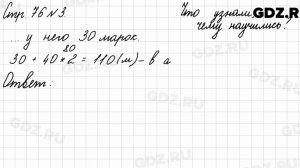 Стр. 76 №3.
Что узнали,
чему научились?
... у него 30 марок.
80
30 + 40*2 = 110 (м) - в а
Ответ:
GDZ.RU